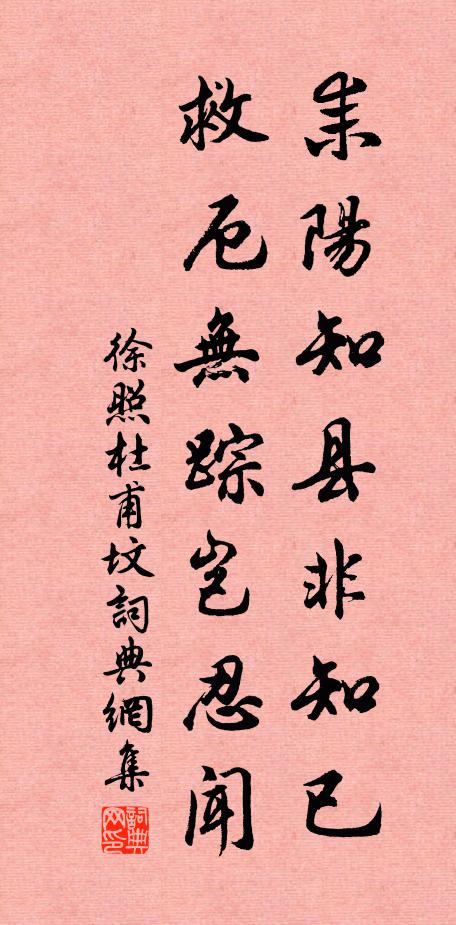 耒陽知县非知已
救厄無踪岂忍闻
徐照杜甫坟詞典網集
詞典网印